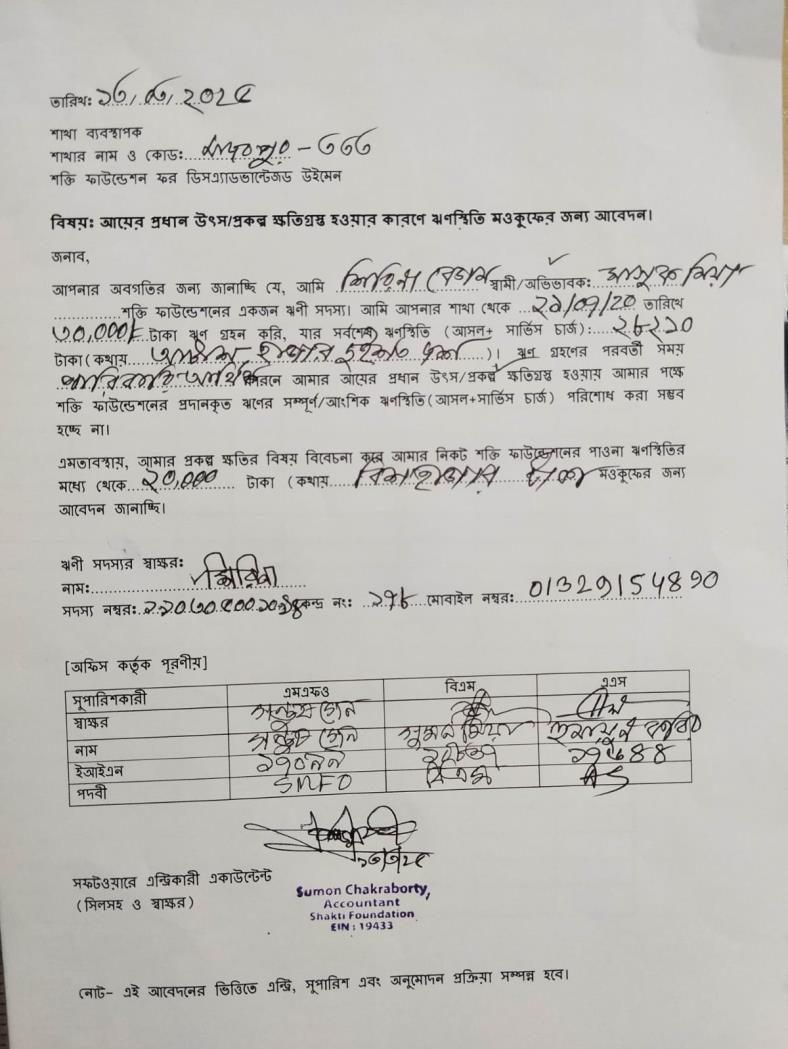 তারিখ: ১৬/৭/২০২৫
শাখা ব্যবস্থাপক
শাখার নাম ও কোড: - ৩৬৬
শক্তি ফাউন্ডেশন ফর ডিসএ্যাডভান্টেজড উইমেন
বিষয়: আয়ের প্রধান উৎস/প্রকল্প ক্ষতিগ্রস্ত হওয়ার কারণে ঋণস্থিতি মওকুফের জন্য আবেদন।
জনাব,
আপনার অবগতির জন্য জানাচ্ছি যে, আমি শিরিনা বেগম স্বামী/অভিভাবক: মাসুক মিয়া
শক্তি ফাউন্ডেশনের একজন ঋনী সদস্য। আমি আপনার শাখা থেকে ২৯/০৭/২০ তারিখে
৩০,০০০/- টাকা ঋন গ্রহন করি, যার সর্বশেষ ঋণস্থিতি (আসল+ সার্ভিস চার্জ): ২৮২১০
টাকা (কথায় আটাশ হাজার দুইশত দশ)। ঋন গ্রহণের পরবর্তী সময়
পারিবারিক আর্থিক কারনে আমার আয়ের প্রধান উৎস/প্রকল্প ক্ষতিগ্রস্ত হওয়ায় আমার পক্ষে
শক্তি ফাউন্ডেশনের প্রদানকৃত ঋণের সম্পূর্ণ/আংশিক ঋণস্থিতি (আসল+সার্ভিস চার্জ) পরিশোধ করা সম্ভব
হচ্ছে না।
এমতাবস্থায়, আমার প্রকল্প ক্ষতির বিষয় বিবেচনা করে আমার নিকট শক্তি ফাউন্ডেশনের পাওনা ঋণস্থিতির
মধ্যে থেকে ২০,০০০ টাকা (কথায় বিশ হাজার টাকা মওকুফের জন্য
আবেদন জানাচ্ছি।
ঋনী সদস্যর স্বাক্ষর:
নাম: শিরিনা
সদস্য নম্বর: কেন্দ্র নং: ২৭৮ মোবাইল নম্বর: 01329154890
[অফিস কর্তৃক পূরনীয়]
সুপারিশকারী এমএফও বিএম এএস
স্বাক্ষর
নাম সুমন মিয়া
ইআইএন
পদবী SMFO বিএম AS
১৬/৭/২৫
সফটওয়ারে এন্ট্রিকারী একাউন্টেন্ট
(সিলসহ ও স্বাক্ষর)
Sumon Chakraborty,
Accountant
Shakti Foundation
EIN : 19433
নোট- এই আবেদনের ভিত্তিতে এন্ট্রি, সুপারিশ এবং অনুমোদন প্রক্রিয়া সম্পন্ন হবে।